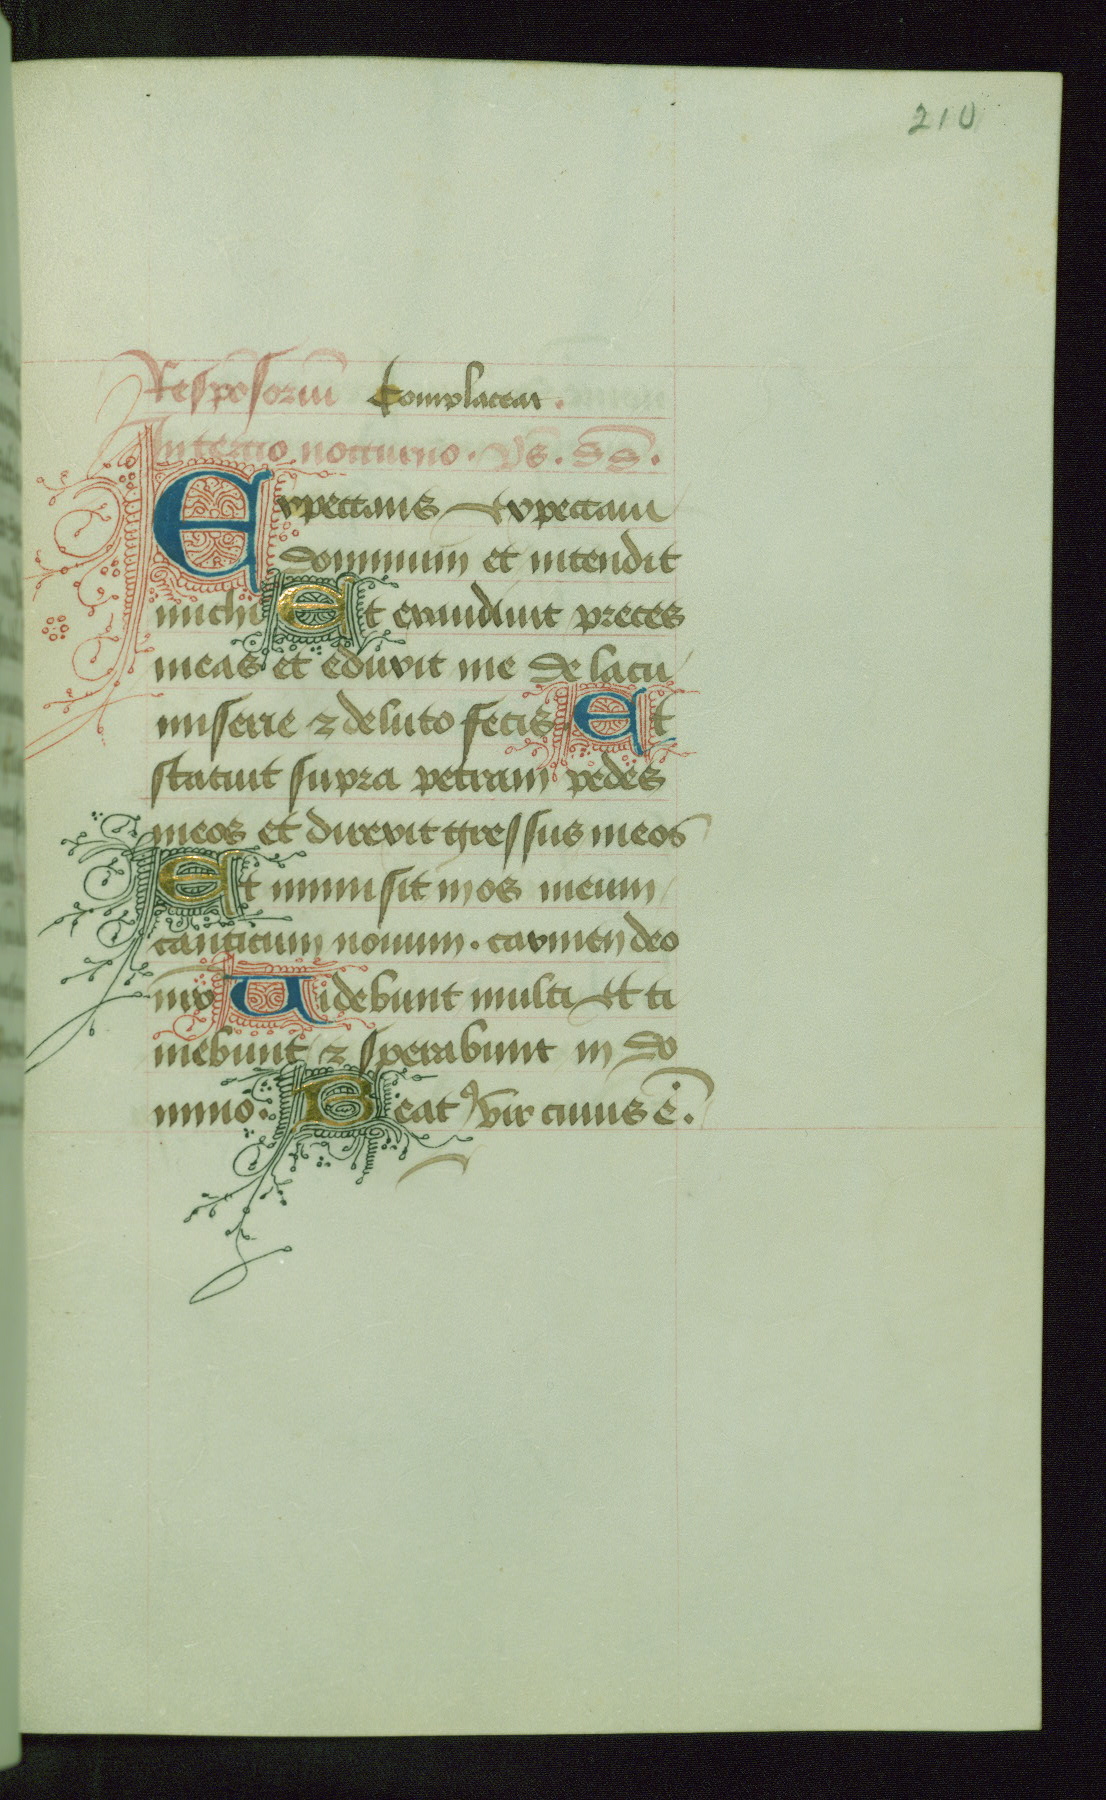 210
Respōsoriū Complaceat.
In tercio nocturno. Ps. dd.
Expectans expectaui
dominum et intendit
michi Et exaudiuit preces
meas et eduxit me de lacu
miserie ⁊ de luto fecis Et
statuit supra petram pedes
meos et direxit gressus meos
Et immisit in os meum
canticum nouum. carmen deo
nr̄o Uidebunt multi et ti
mebunt ⁊ sperabunt in do
mino. Beatꝰ vir cuius ē.